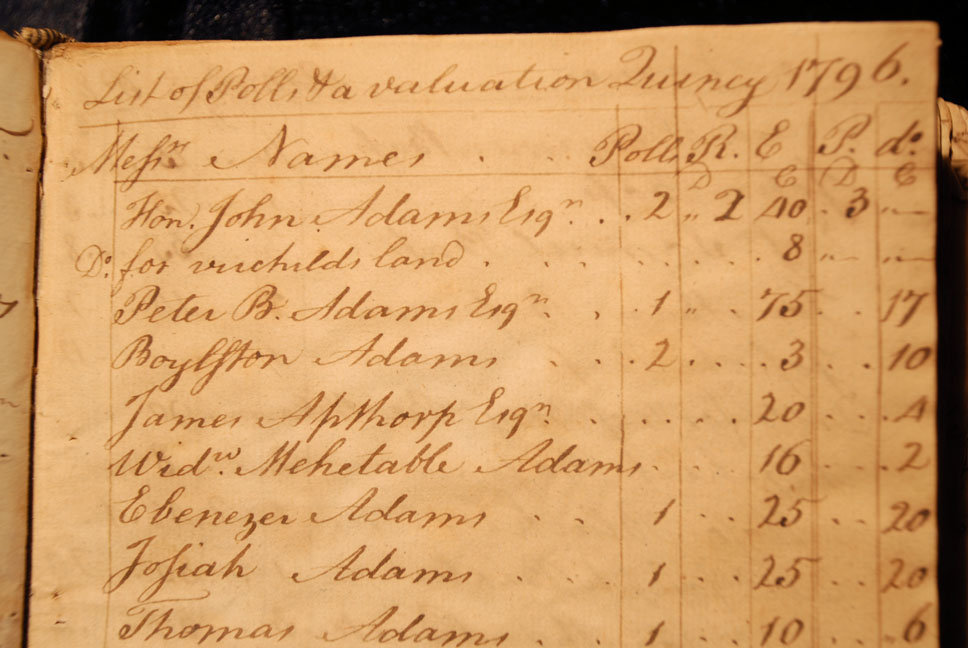 List of Polls & a valuation Quincy 1796.
Messrs. Names . . . Polls R. E P. do.
D C D C
Hon. John Adams Esqr. . . 2 " 2 40 . 3 "
Do. for land . . . . . . . . 8 " "
Peter B. Adams Esqr. . . 1 " . 75 . . 17
Boylston Adams . . . 2 . . . 3 . . 10
James Apthorp Esqr. . . . . . . 20 . . . 4
Widw. Mehetable Adams . . . . 16 . . . 2
Ebenezer Adams . . 1 . . 25 . . 20
Josiah Adams . . . 1 . . 25 . . 20
Thomas Adams . . 1 . . 10 . . 6